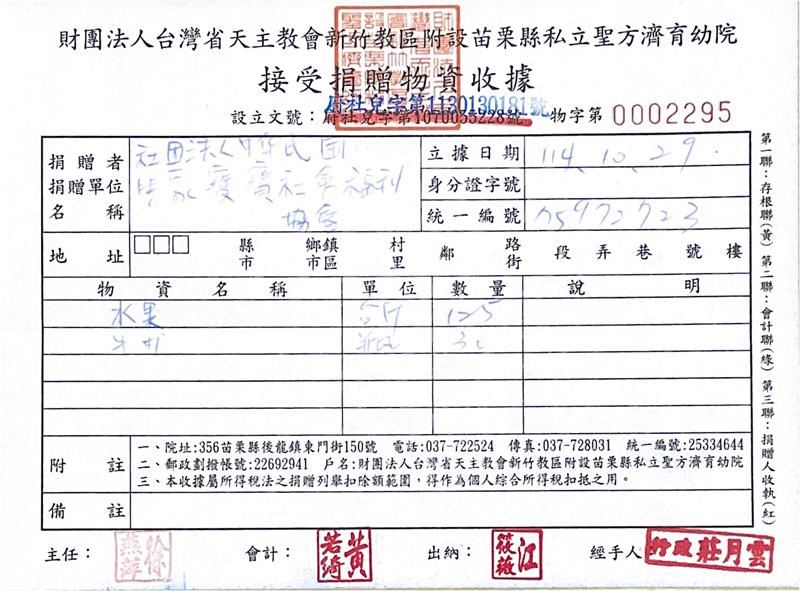 財團法人台灣省天主教會新竹教區附設苗栗縣私立聖方濟育幼院
接受捐贈物資收據
府社兒字第1130130181號
設立文號：府社兒字第1070055228號 物字第 0002295
捐贈者
捐贈單位
名稱
社団法人中华民国
寶社會福利
協會
立據日期 114.10.29.
身分證字號
統一編號
地址 縣市 鄉鎮市區 村里 鄰 路街 段 弄 巷 號 樓
物資名稱 單位 數量 說明
水果 台斤 125
牛奶 瓶 30
附註
一、院址:356苗栗縣後龍鎮東門街150號 電話:037-722524 傳真:037-728031 統一編號:25334644
二、郵政劃撥帳號:22692941 戶名:財團法人台灣省天主教會新竹教區附設苗栗縣私立聖方濟育幼院
三、本收據屬所得稅法之捐贈列舉扣除額範圍，得作為個人綜合所得稅扣抵之用。
備註
主任： 徐燕萍 會計： 黃若綺 出納： 江筱薇 經手人 行政莊月雲
第一聯：存根聯(黃) 第二聯：會計聯(綠) 第三聯：捐贈人收執(紅)